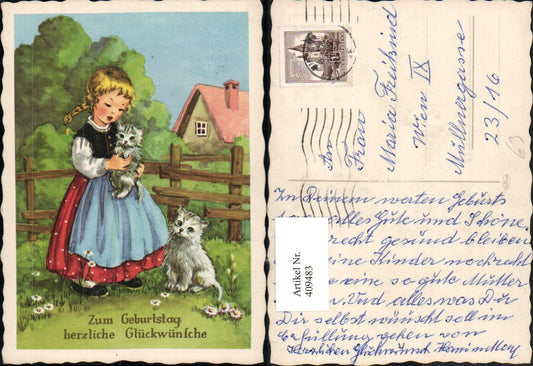 Zum Geburtstag
herzliche Glückwünsche
An
Frau
Maria Frühwind
Wien IX
Müllnergasse
23/16
63
Artikel Nr.
409483
Zu Deinem werten Geburts
alles Gute und Schöne
recht gesund bleiben
eine Kinder noch recht
eine so gute Mutter
Und alles was Du
Dir selbst wünscht soll in
Erfüllung gehen von
Herzlichen Glückwunsch